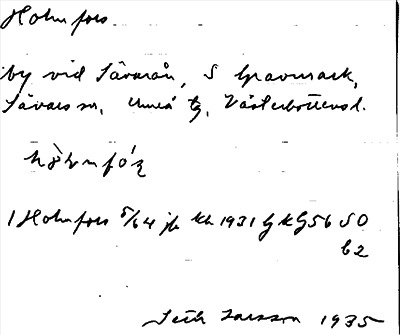 Holmfors
by vid Sävarån, S Gravmark,
Sävars sn, Umeå tg, Västerbottensl.
1 Holmfors 5/64 jb kk 1931 G K G56 SO
b2
Seth Larsson 1935